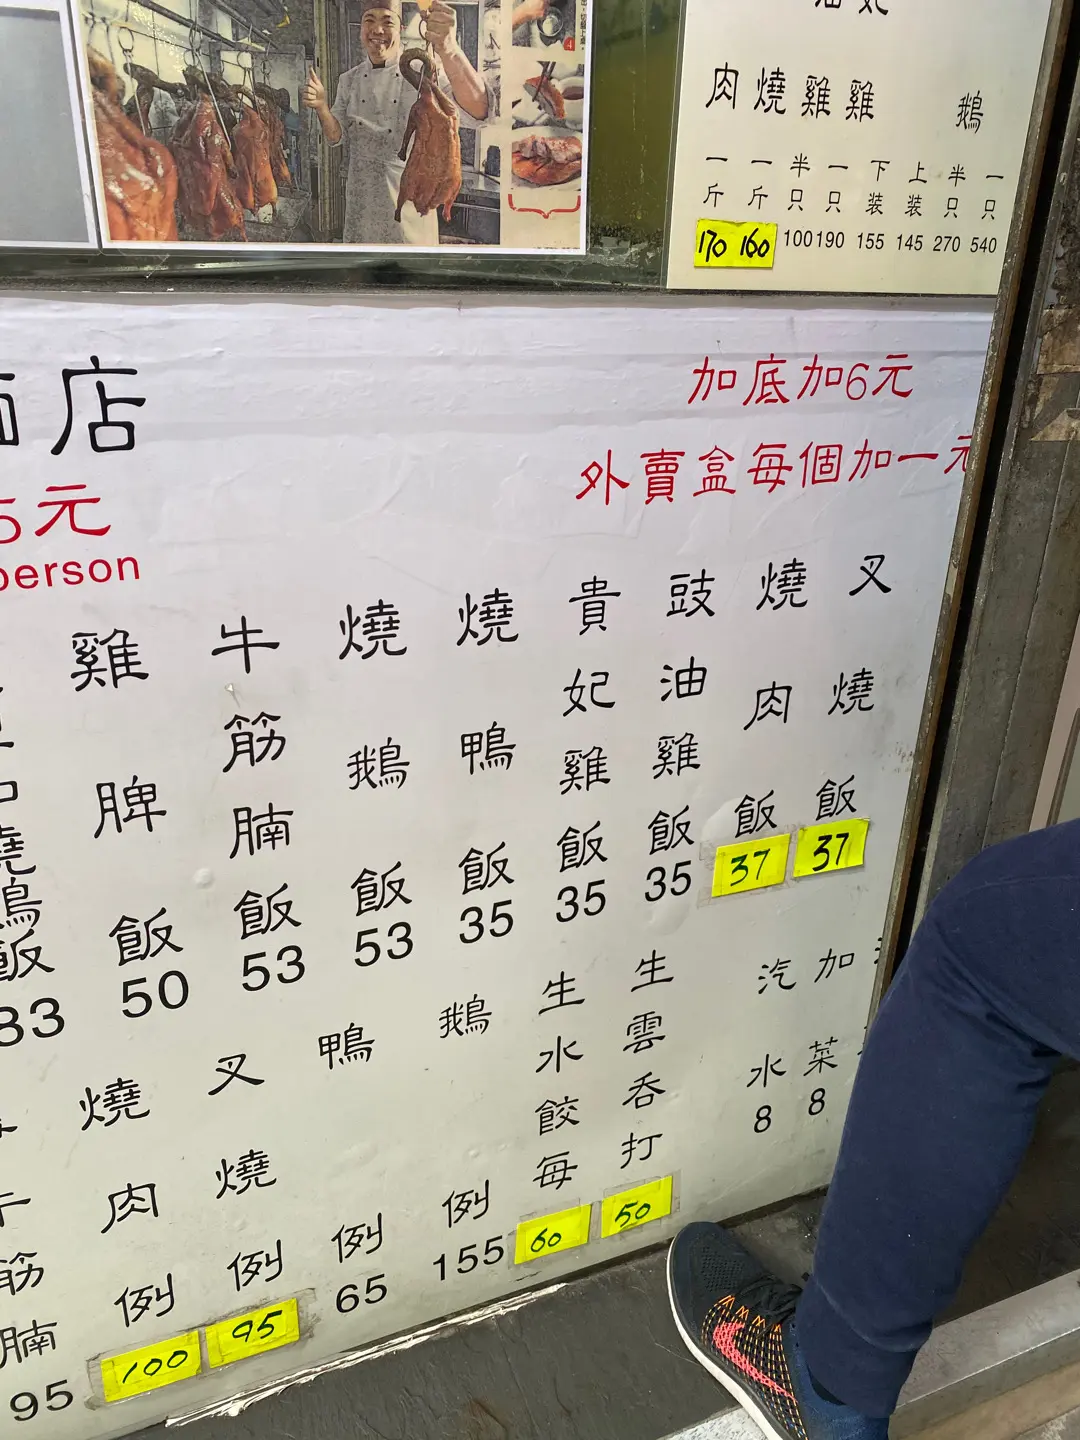 鵝
一只 540
半只 270
上装 145
下装 155
雞 一只 190
雞 半只 100
燒 一斤 160
肉 一斤 170
店
5元
person
加底加6元
外賣盒每個加一元
叉燒飯 37
燒肉飯 37
豉油雞飯 35
貴妃雞飯 35
燒鴨飯 35
燒鵝飯 53
牛筋腩飯 53
雞脾飯 50
燒鴨飯 83
加菜 8
汽水 8
生雲吞打 50
生水餃每 60
鵝例 155
鴨例 65
叉燒例 95
燒肉例 100
筋腩 95